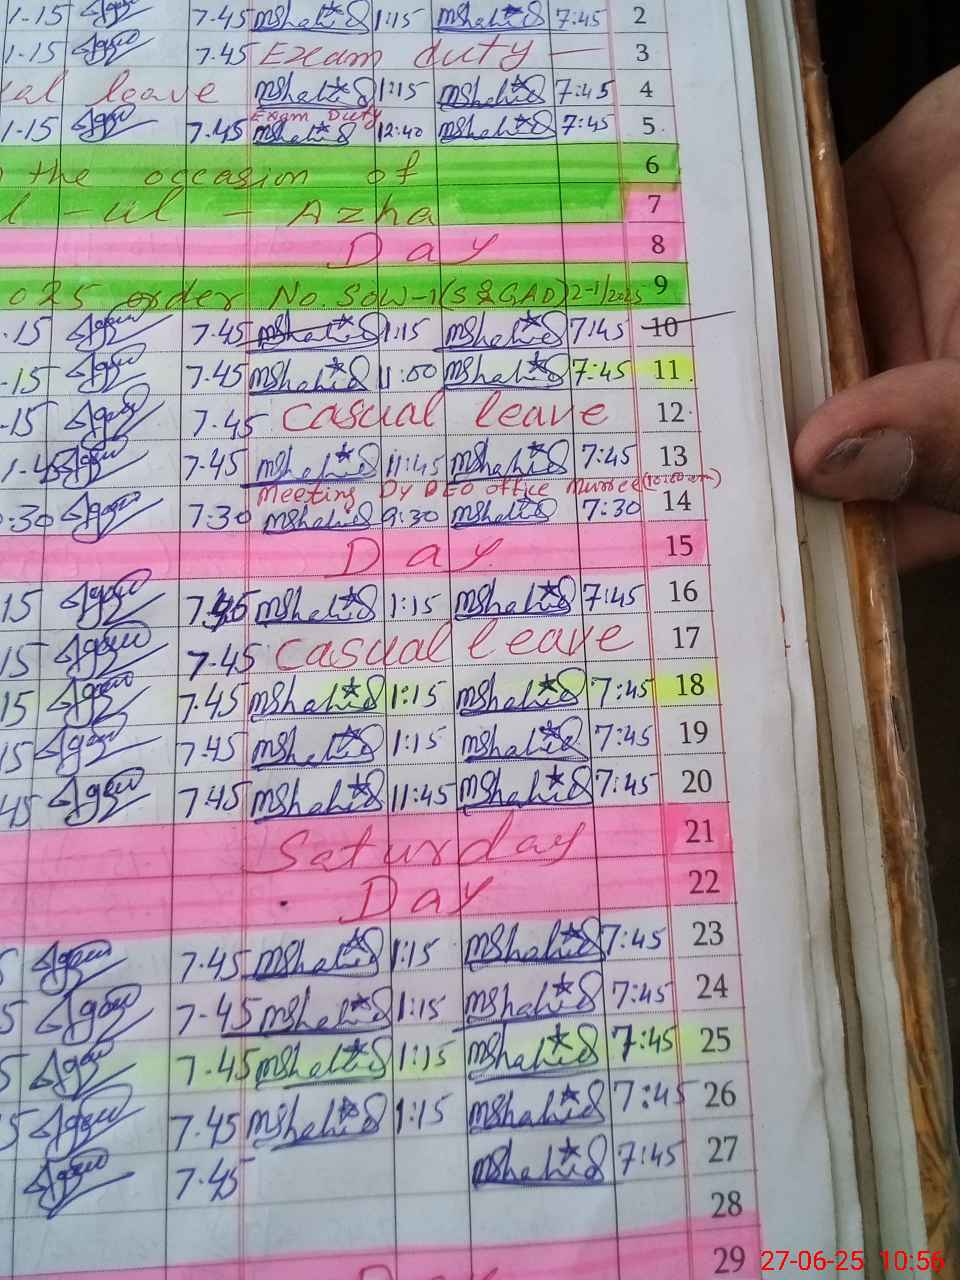 1-15 7.45 MShahid 1:15 MShahid 7:45 2
1-15 7.45 Exam duty 3
leave MShahid 1:15 MShahid 7:45 4
Exam Duty
1-15 7.45 MShahid 12:40 MShahid 7:45 5
the occasion of 6
- ul - Azha 7
Day 8
025 order No. SOW-1(S&GAD)2-1/2025 9
.15 7.45 MShahid 1:15 MShahid 7:45 10
-15 7.45 MShahid 11:00 MShahid 7:45 11
-15 7.45 Casual leave 12
1-45 7.45 MShahid 11:45 MShahid 7:45 13
Meeting Dy DEO office Murree (10:00 am)
:30 7:30 MShahid 9:30 MShahid 7:30 14
Day 15
15 7.45 MShahid 1:15 MShahid 7:45 16
15 7.45 Casual leave 17
15 7.45 MShahid 1:15 MShahid 7:45 18
15 7.45 MShahid 1:15 MShahid 7:45 19
45 7.45 MShahid 11:45 MShahid 7:45 20
Saturday 21
Day 22
5 7.45 MShahid 1:15 MShahid 7:45 23
5 7-45 MShahid 1:15 MShahid 7:45 24
5 7.45 MShahid 1:15 MShahid 7:45 25
5 7.45 MShahid 1:15 MShahid 7:45 26
7.45 MShahid 7:45 27
28
29
27-06-25 10:56